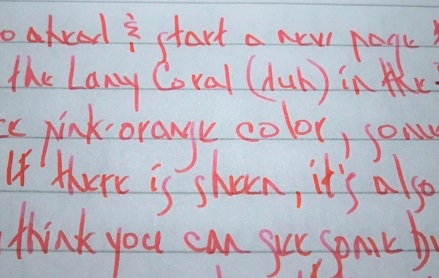 o ahead & start a new page
the Lamy Coral (duh) in the
pink-orange color, some
If there is sheen, it's also
think you can see some